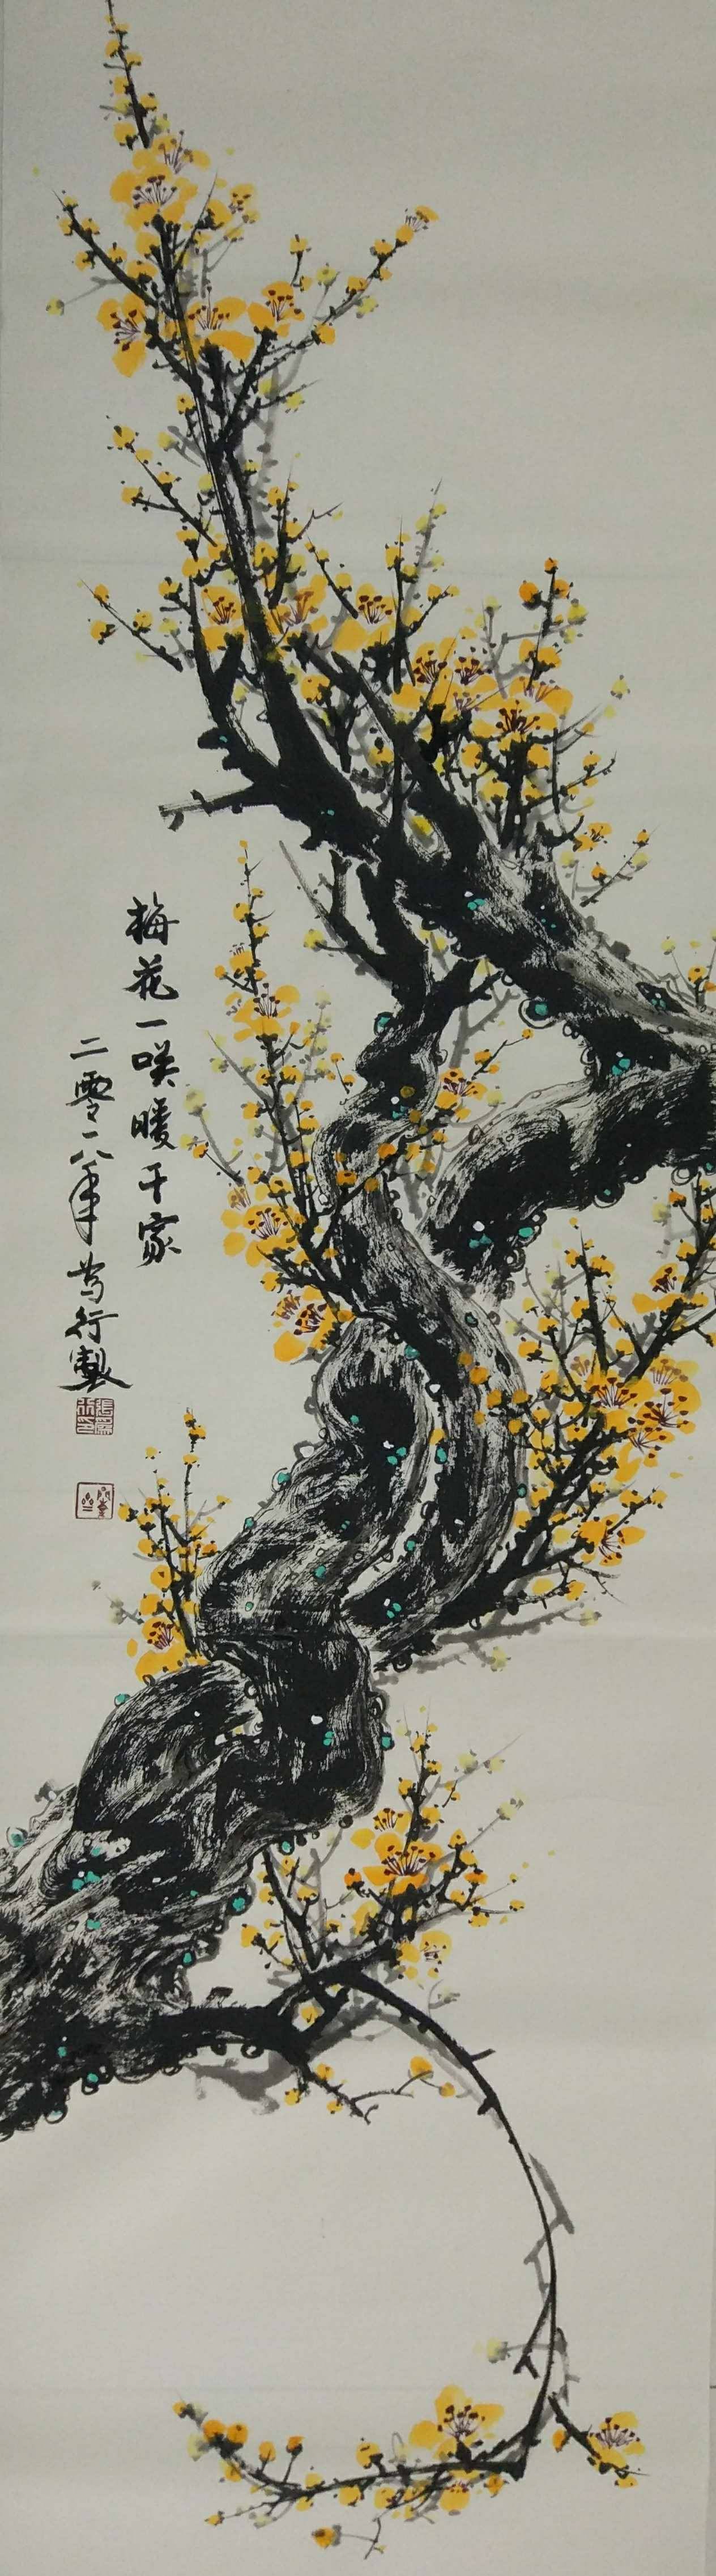 梅花一咲暖千家
二零一八年為行製